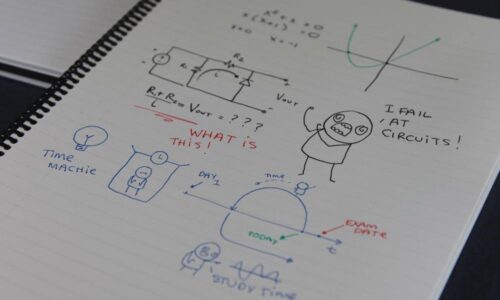 x² + x = 0
x(x+1) = 0
x=0 x=-1
R₂
R₁
L
+
-
+
-
VOUT
R₁+R₂ = VOUT = ???
L
WHAT IS
THIS!
I FAIL
AT
CIRCUITS!
TIME
MACHIE
DAY 1
TIME
TODAY
EXAM
DATE
t
STUDY TIME